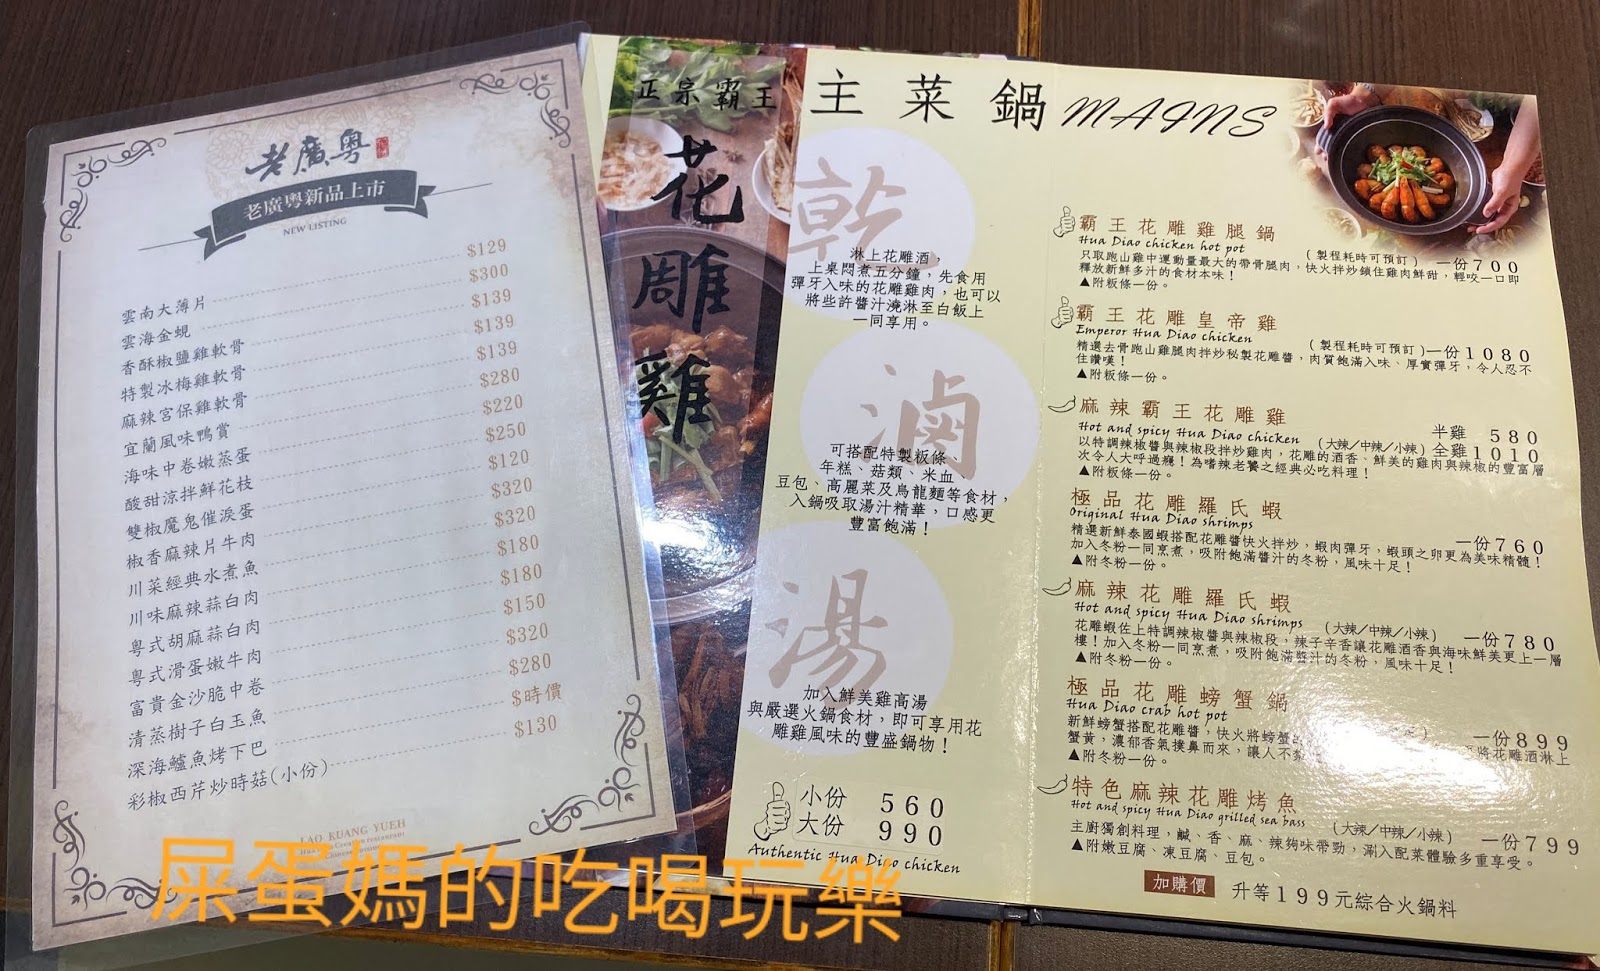 老廣粵
老廣粵新品上市
NEW LISTING
雲南大薄片 $129
雲海金蜆 $300
香酥椒鹽雞軟骨 $139
特製冰梅雞軟骨 $139
麻辣宮保雞軟骨 $139
宜蘭風味鴨賞 $280
海味中卷嫩蒸蛋 $220
酸甜涼拌鮮花枝 $250
雙椒魔鬼催淚蛋 $120
椒香麻辣片牛肉 $320
川菜經典水煮魚 $320
川味麻辣蒜白肉 $180
粵式胡麻蒜白肉 $180
粵式滑蛋嫩牛肉 $150
富貴金沙脆中卷 $320
清蒸樹子白玉魚 $280
深海鱸魚烤下巴 $時價
彩椒西芹炒時菇(小份) $130
LAO KUANG YUEH
正宗霸王
花雕雞
主菜鍋 MAINS
乾
淋上花雕酒，
上桌悶煮五分鐘，先食用
彈牙入味的花雕雞肉，也可以
將些許醬汁澆淋至白飯上
一同享用。
滷
可搭配特製板條、
年糕、菇類、米血、
豆包、高麗菜及烏龍麵等食材，
入鍋吸取湯汁精華，口感更
豐富飽滿！
湯
加入鮮美雞高湯
與嚴選火鍋食材，即可享用花
雕雞風味的豐盛鍋物！
小份 560
大份 990
Authentic Hua Diao chicken
霸王花雕雞腿鍋
Hua Diao chicken hot pot (製程耗時可預訂) 一份700
只取跑山雞中運動量最大的帶骨腿肉，快火拌炒鎖住雞肉鮮甜，輕咬一口即
釋放新鮮多汁的食材本味！
▲附板條一份。
霸王花雕皇帝雞
Emperor Hua Diao chicken (製程耗時可預訂) 一份1080
精選去骨跑山雞腿肉拌炒秘製花雕醬，肉質飽滿入味、厚實彈牙，令人忍不
住讚嘆！
▲附板條一份。
麻辣霸王花雕雞 半雞 580
Hot and spicy Hua Diao chicken (大辣/中辣/小辣) 全雞1010
以特調辣椒醬與辣椒段拌炒雞肉，花雕的酒香、鮮美的雞肉與辣椒的豐富層
次令人大呼過癮！為嗜辣老饕之經典必吃料理！
▲附板條一份。
極品花雕羅氏蝦
Original Hua Diao shrimps 一份760
精選新鮮泰國蝦搭配花雕醬快火拌炒，蝦肉彈牙，蝦頭之卵更為美味精髓！
加入冬粉一同烹煮，吸附飽滿醬汁的冬粉，風味十足！
▲附冬粉一份。
麻辣花雕羅氏蝦
Hot and spicy Hua Diao shrimps (大辣/中辣/小辣) 一份780
花雕蝦佐上特調辣椒醬與辣椒段，辣子辛香讓花雕酒香與海味鮮美更上一層
樓！加入冬粉一同烹煮，吸附飽滿醬汁的冬粉，風味十足！
▲附冬粉一份。
極品花雕螃蟹鍋
Hua Diao crab hot pot 一份899
新鮮螃蟹搭配花雕醬，快火將螃蟹 將花雕酒淋上
蟹黃，濃郁香氣撲鼻而來，讓人不
▲附冬粉一份。
特色麻辣花雕烤魚
Hot and spicy Hua Diao grilled sea bass (大辣/中辣/小辣) 一份799
主廚獨創料理，鹹、香、麻、辣夠味帶勁，涮入配菜體驗多重享受。
▲附嫩豆腐、凍豆腐、豆包。
加購價 升等199元綜合火鍋料
屎蛋媽的吃喝玩樂